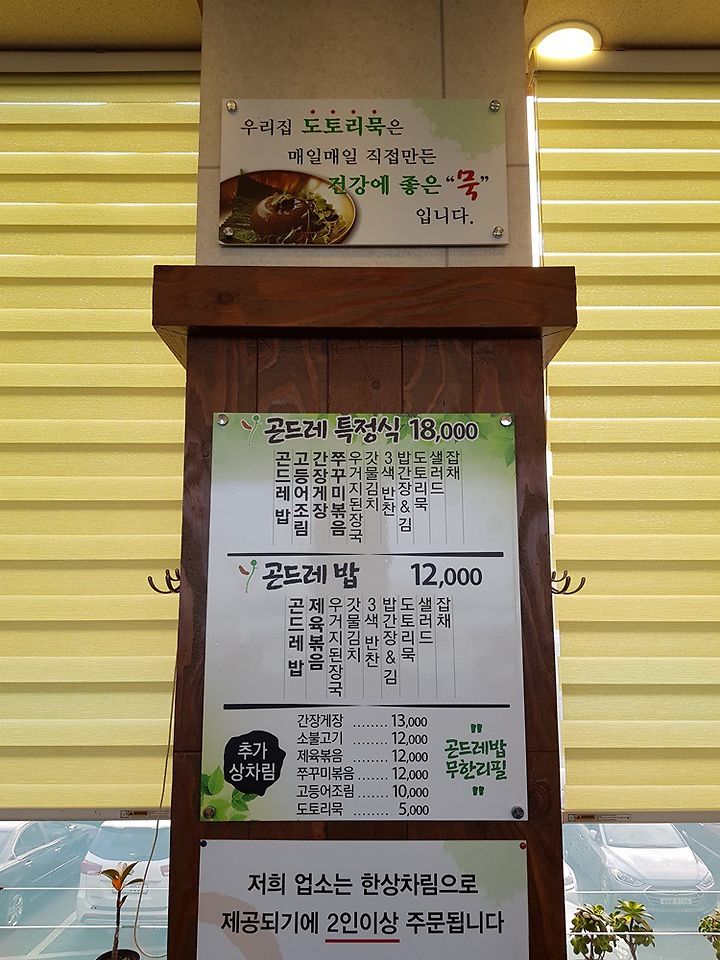 우리집 도토리묵은
매일매일 직접만든
건강에 좋은 "묵"
입니다.
곤드레 특정식 18,000
곤드레 밥
고등어조림
간장게장
쭈꾸미볶음
우거지된장국
갓물김치
3색 반찬
밥간장&김
도토리묵
샐러드
잡채
곤드레 밥 12,000
곤드레 밥
제육볶음
우거지된장국
갓물김치
3색 반찬
밥간장&김
도토리묵
샐러드
잡채
추가
상차림
간장게장 ........ 13,000
소불고기 ........ 12,000
제육볶음 ........ 12,000
쭈꾸미볶음 ....... 12,000
고등어조림 ....... 10,000
도토리묵 ........ 5,000
"
곤드레밥
무한리필
"
저희 업소는 한상차림으로
제공되기에 2인이상 주문됩니다